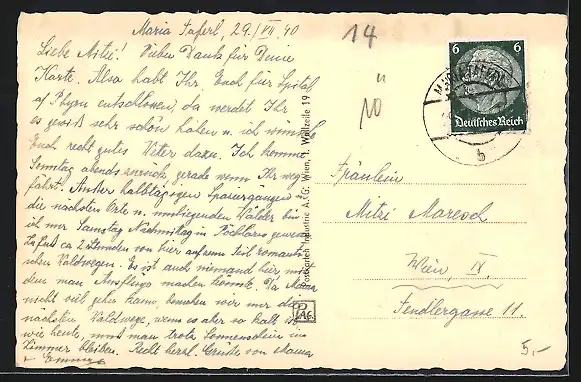 Maria Taferl, 29./VII. 40
Liebe Mitzi! Vielen Dank für Deine
Karte. Also habt Ihr Euch für Spital
a/ Phyrn entschlossen, da werdet Ihr
es gewiß sehr schön haben u. ich wünsche
Euch recht gutes Wetter dazu. Ich komme
Sonntag abends zurück, gerade wenn Ihr weg
fahrt. Außer halbtägigen Spaziergängen in
die nächsten Orte u. umliegenden Wälder bin
ich nur Samstag Nachmittag in Pöchlarn gewesen
ca 2 Stunden von hier auf zum Teil romanti-
schen Waldwegen. Es ist auch niemand hier mit
dem man Ausflüge machen könnte. Da Mama
nicht viel gehen kann, machen wir nur die
nächsten Waldwege, wenn es aber so kalt ist
wie heute, muß man trotz Sonnenschein im
Zimmer bleiben. Recht herzl. Grüße von Mama
14
10
6 6
Deutsches Reich
b
Postkarten Industrie A. G. Wien, I. Wollzeile 19
PIAG
Fräulein
Mitzi Maresch
Wien, IV.
Fendlergasse 11.
5,-